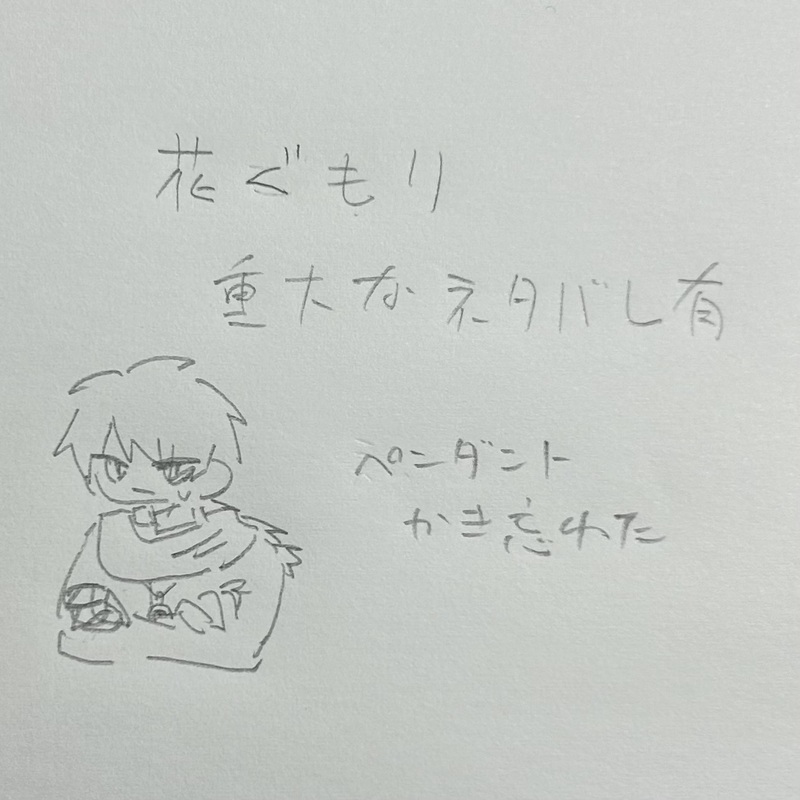 花ぐもり
重大なネタバレ有
ペンダント
かき忘れた